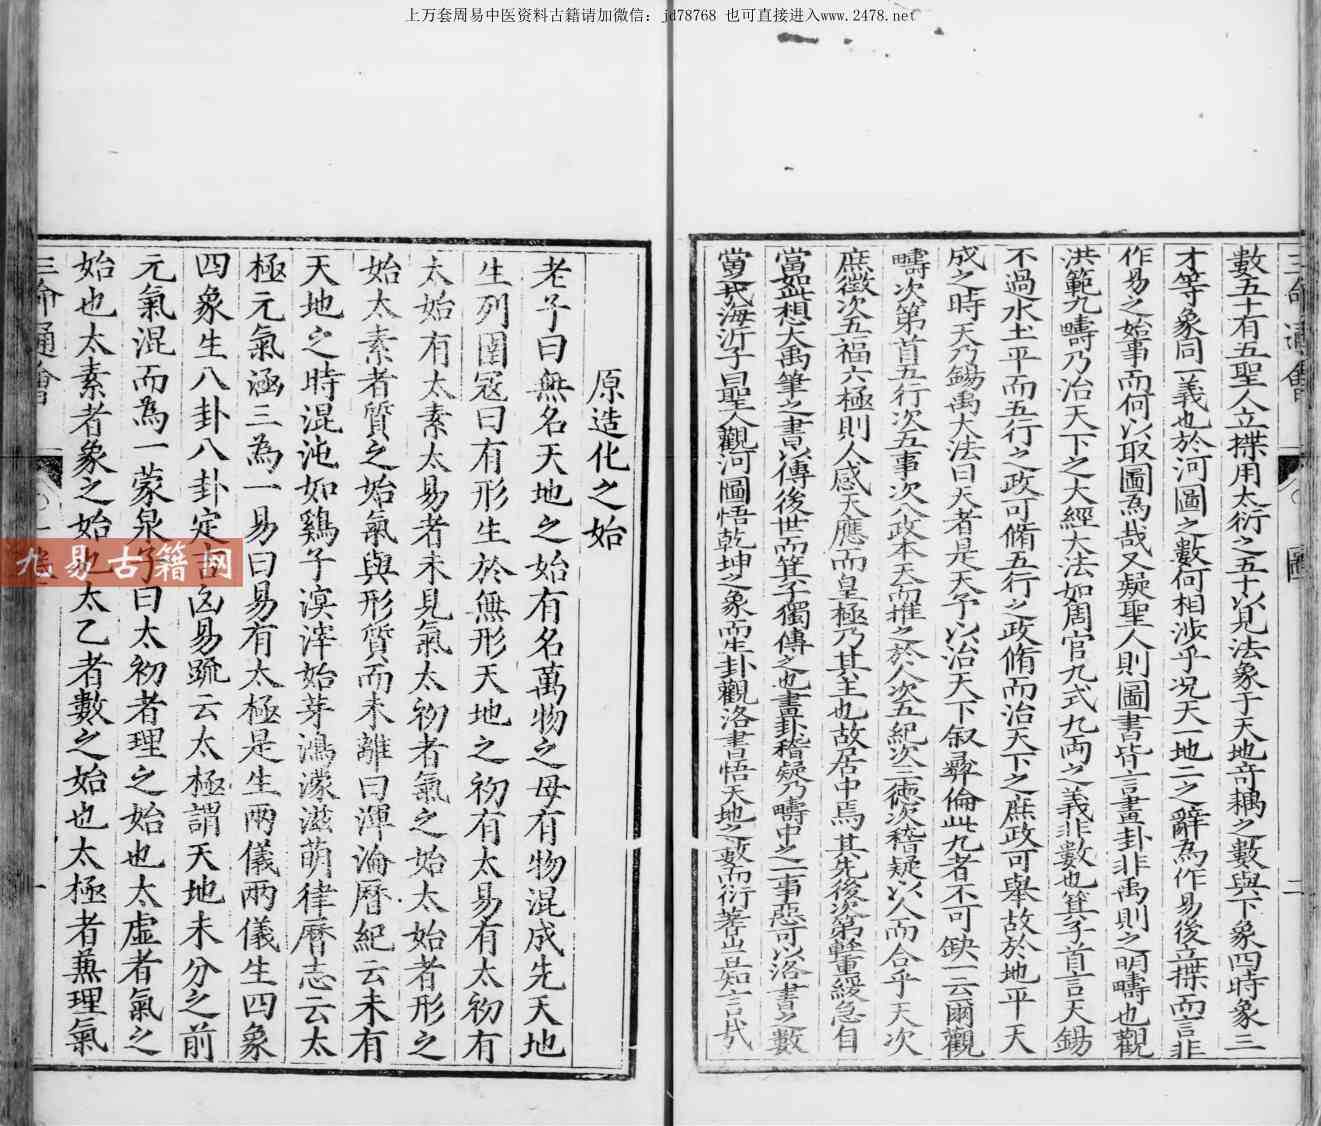 上万套周易中医资料古籍请加微信：jd78768 也可直接进入www.2478.net
數五十有五聖人立揲用太衍之五十以見法象于天地竒耦之數與下象四時象三
才等象同一義也於河圖之數何相渉乎况天一地二之辭為作易後立揲而言非
作易之始事而何以取圖為哉又疑聖人則圖書皆言畫卦非禹則之明疇也觀
洪範九疇乃治天下之大經大法如周官九式九两之義非數也箕子首言天錫
不過水土平而五行之政可脩五行之政脩而治天下之庶政可舉故於地平天
成之時天乃錫禹大法曰天者是天予以治天下叙彛倫此九者不可缺一云爾觀
疇次第首五行次五事次八政本天而推之於人次五紀次三徳次稽疑以人而合乎天次
庶徴次五福六極則人感天應而皇極乃其主也故居中焉其先後次第輕重緩急自
當如此想大禹筆之書以傳後世而箕子獨傳之也畫卦稽疑乃疇中之一事惡可以洛書之數
當哉海沂子曰聖人觀河圖悟乾坤之象而生卦觀洛書悟天地之數而衍蓍豈知言哉
三命通會
圖
二
原造化之始
老子曰無名天地之始有名萬物之母有物混成先天地
生列圄冦曰有形生於無形天地之初有太易有太初有
太始有太素太易者未見氣太初者氣之始太始者形之
始太素者質之始氣與形質而未離曰渾淪曆紀云未有
天地之時混沌如鷄子溟涬始芽鴻濛滋萌律曆志云太
極元氣涵三為一易曰易有太極是生兩儀兩儀生四象
四象生八卦八卦定吉凶易䟽云太極謂天地未分之前
元氣混而為一蒙泉子曰太初者理之始也太虚者氣之
始也太素者象之始也太乙者數之始也太極者兼理氣
三命通會
九易古籍网